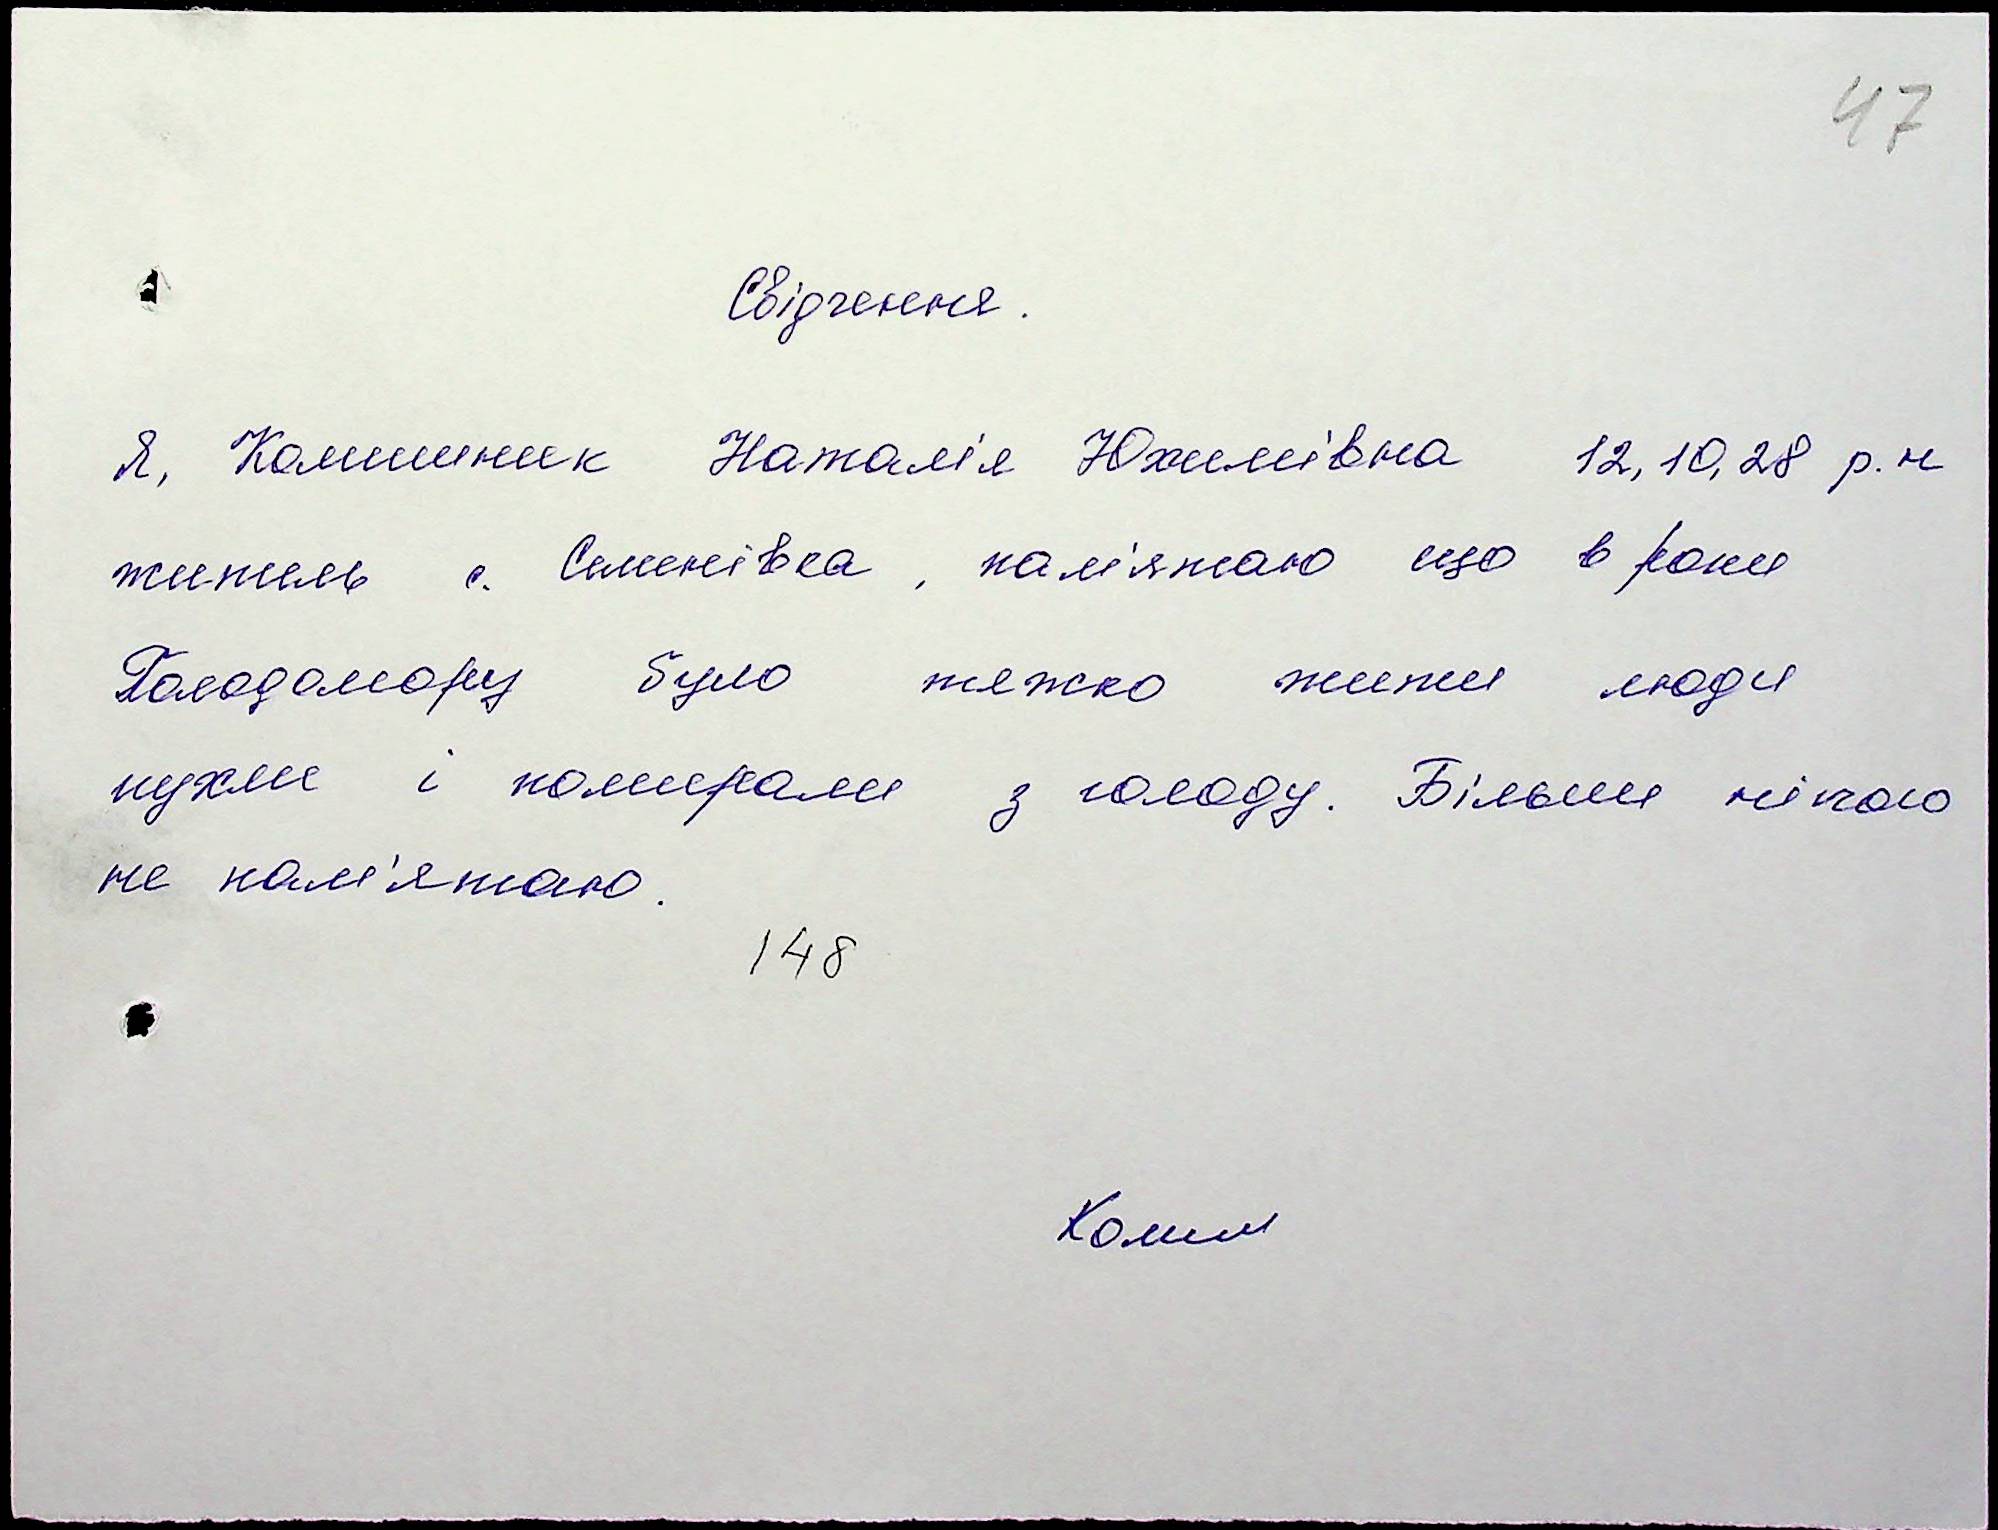 47
Свідчення.
Я, Наталія Юхимівна 12,10,28 р.н
житель с. Семенівка, пам'ятаю що в роки
Голодомору було тяжко жити люди
пухли і помирали з голоду. Більше нічого
не пам'ятаю.
148